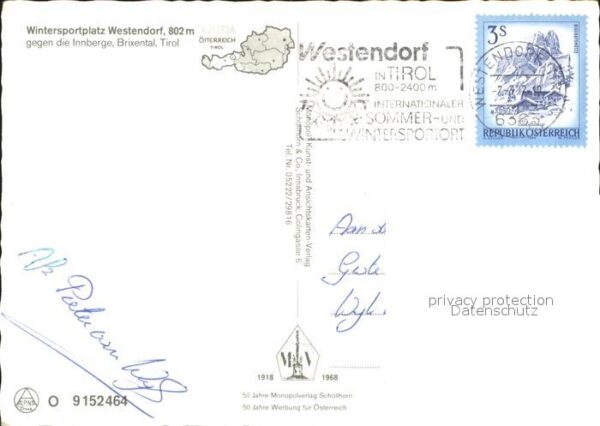 Wintersportplatz Westendorf, 802 m
gegen die Innberge, Brixental, Tirol
ÖSTERREICH
TIROL
Westendorf
IN TIROL
800-2400 m
INTERNATIONALER
SOMMER- UND
WINTERSPORTORT
WESTENDORF
6363
3 S
REPUBLIK ÖSTERREICH
Monopol Kunst- und Ansichtskarten-Verlag
Schöllhorn & Co., Innsbruck, Colingasse 5
Tel. Nr. 05222/29816
Aan
privacy protection
Datenschutz
Pieter van
1918 1968
O 9152464
50 Jahre Monopolverlag Schöllhorn
50 Jahre Werbung für Österreich